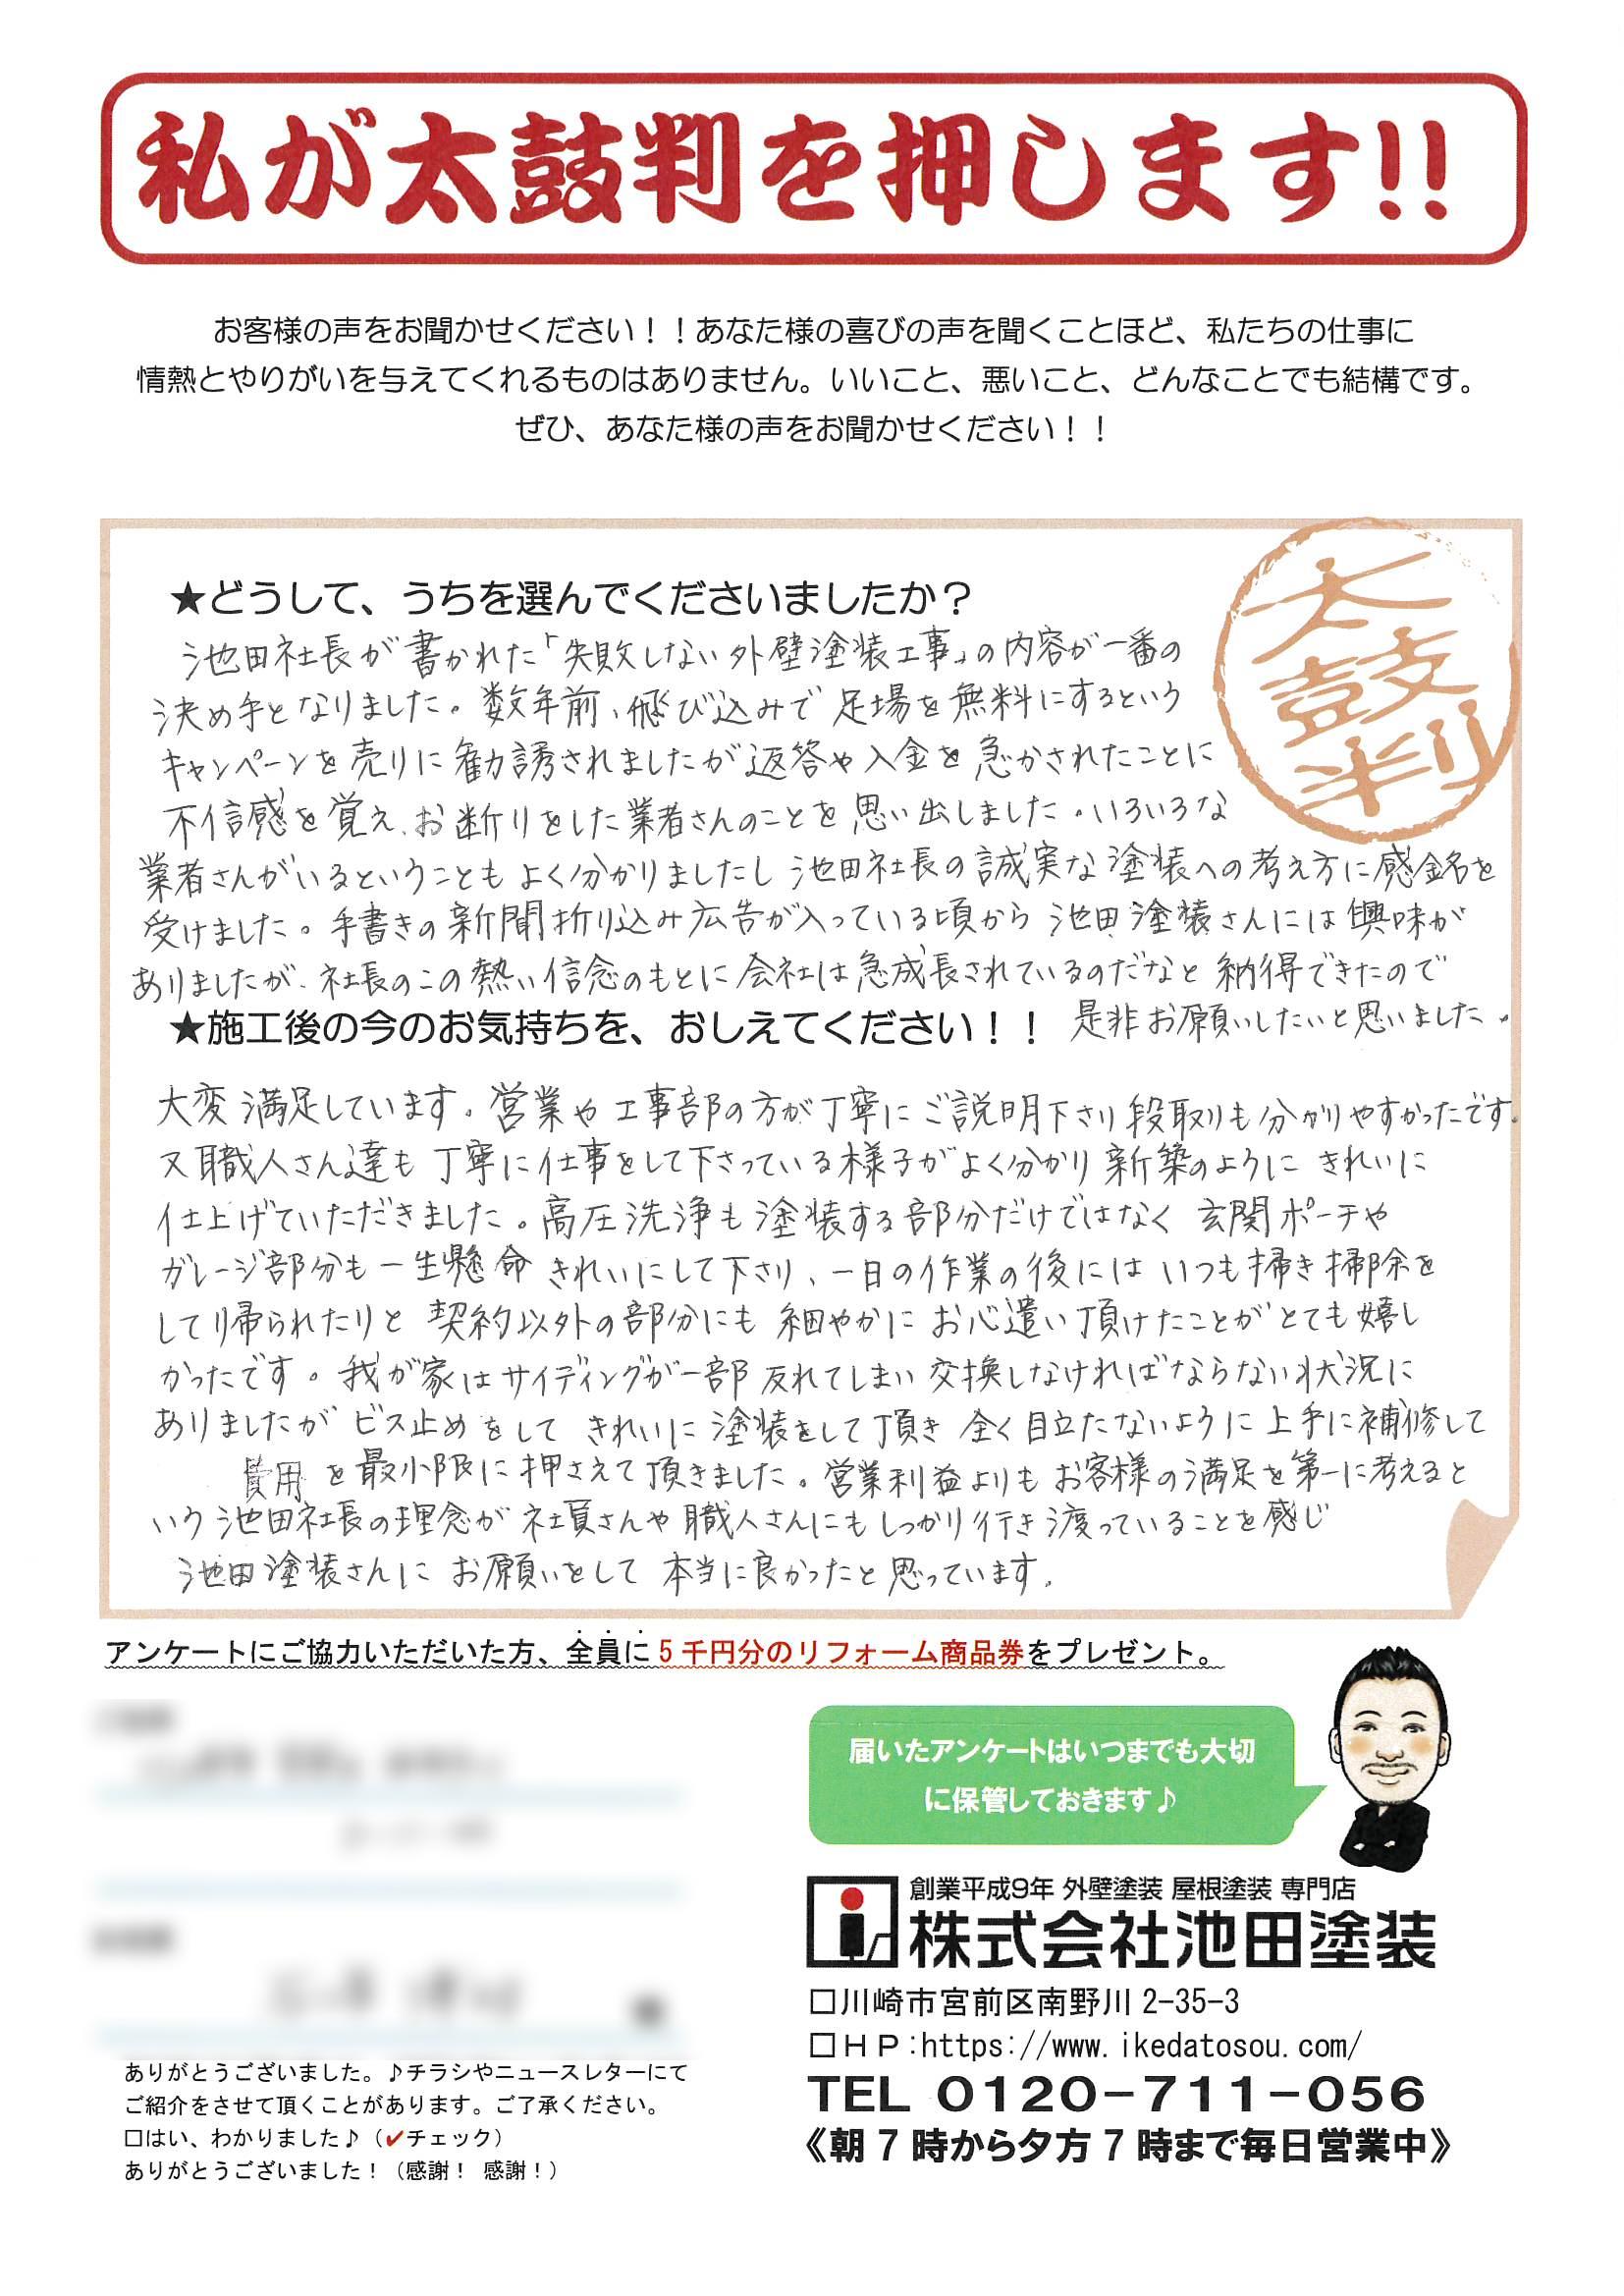 私が太鼓判を押します!!
お客様の声をお聞かせください！！あなた様の喜びの声を聞くことほど、私たちの仕事に
情熱とやりがいを与えてくれるものはありません。いいこと、悪いこと、どんなことでも結構です。
ぜひ、あなた様の声をお聞かせください！！
太鼓判
★どうして、うちを選んでくださいましたか？
池田社長が書かれた「失敗しない外壁塗装工事」の内容が一番の
決め手となりました。数年前、飛び込みで足場を無料にするという
キャンペーンを売りに勧誘されましたが返答や入金を急かされたことに
不信感を覚え、お断りをした業者さんのことを思い出しました。いろいろな
業者さんがいるということもよく分かりましたし池田社長の誠実な塗装への考え方に感銘を
受けました。手書きの新聞折り込み広告が入っている頃から池田塗装さんには興味が
ありましたが、社長のこの熱い信念のもとに会社は急成長されているのだなと納得できたので
是非お願いしたいと思いました。
★施工後の今のお気持ちを、おしえてください！！
大変満足しています。営業や工事部の方が丁寧にご説明下さり段取りも分かりやすかったです。
又職人さん達も丁寧に仕事をして下さっている様子がよく分かり新築のようにきれいに
仕上げていただきました。高圧洗浄も塗装する部分だけではなく玄関ポーチや
ガレージ部分も一生懸命きれいにして下さり、一日の作業の後にはいつも掃き掃除を
して帰られたりと契約以外の部分にも細やかにお心遣い頂けたことがとても嬉し
かったです。我が家はサイディングが一部反れてしまい交換しなければならない状況に
ありましたがビス止めをしてきれいに塗装をして頂き全く目立たないように上手に補修して
費用を最小限に押さえて頂きました。営業利益よりもお客様の満足を第一に考えると
いう池田社長の理念が社員さんや職人さんにもしっかり行き渡っていることを感じ
池田塗装さんにお願いをして本当に良かったと思っています。
アンケートにご協力いただいた方、全員に5千円分のリフォーム商品券をプレゼント。
届いたアンケートはいつまでも大切
に保管しておきます♪
創業平成9年 外壁塗装 屋根塗装 専門店
株式会社池田塗装
□川崎市宮前区南野川2-35-3
□ＨＰ:https://www.ikedatosou.com/
TEL 0120-711-056
《朝7時から夕方7時まで毎日営業中》
ありがとうございました。♪チラシやニュースレターにて
ご紹介をさせて頂くことがあります。ご了承ください。
□はい、わかりました♪（✔チェック）
ありがとうございました！（感謝！ 感謝！）